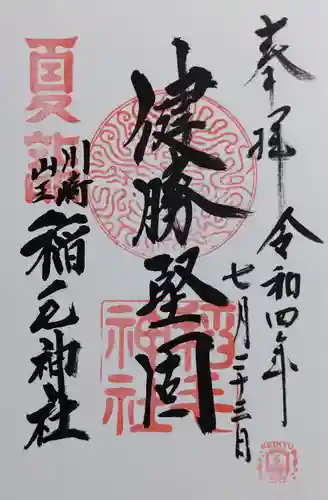 奉拝
令和四年
七月二十三日
健勝堅固
夏詣
川崎
山王
稲毛神社
稲毛
神社
KEIKYU